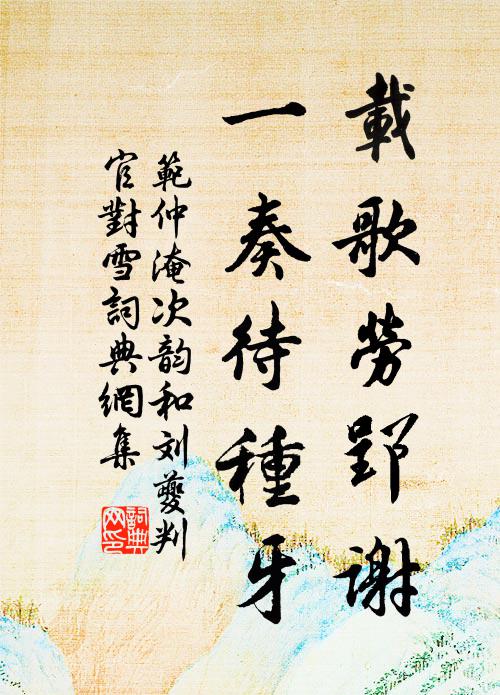 載歌勞郢謝
一奏待種牙
範仲淹次韵和刘夔判
官對雪詞典網集
詞典网印